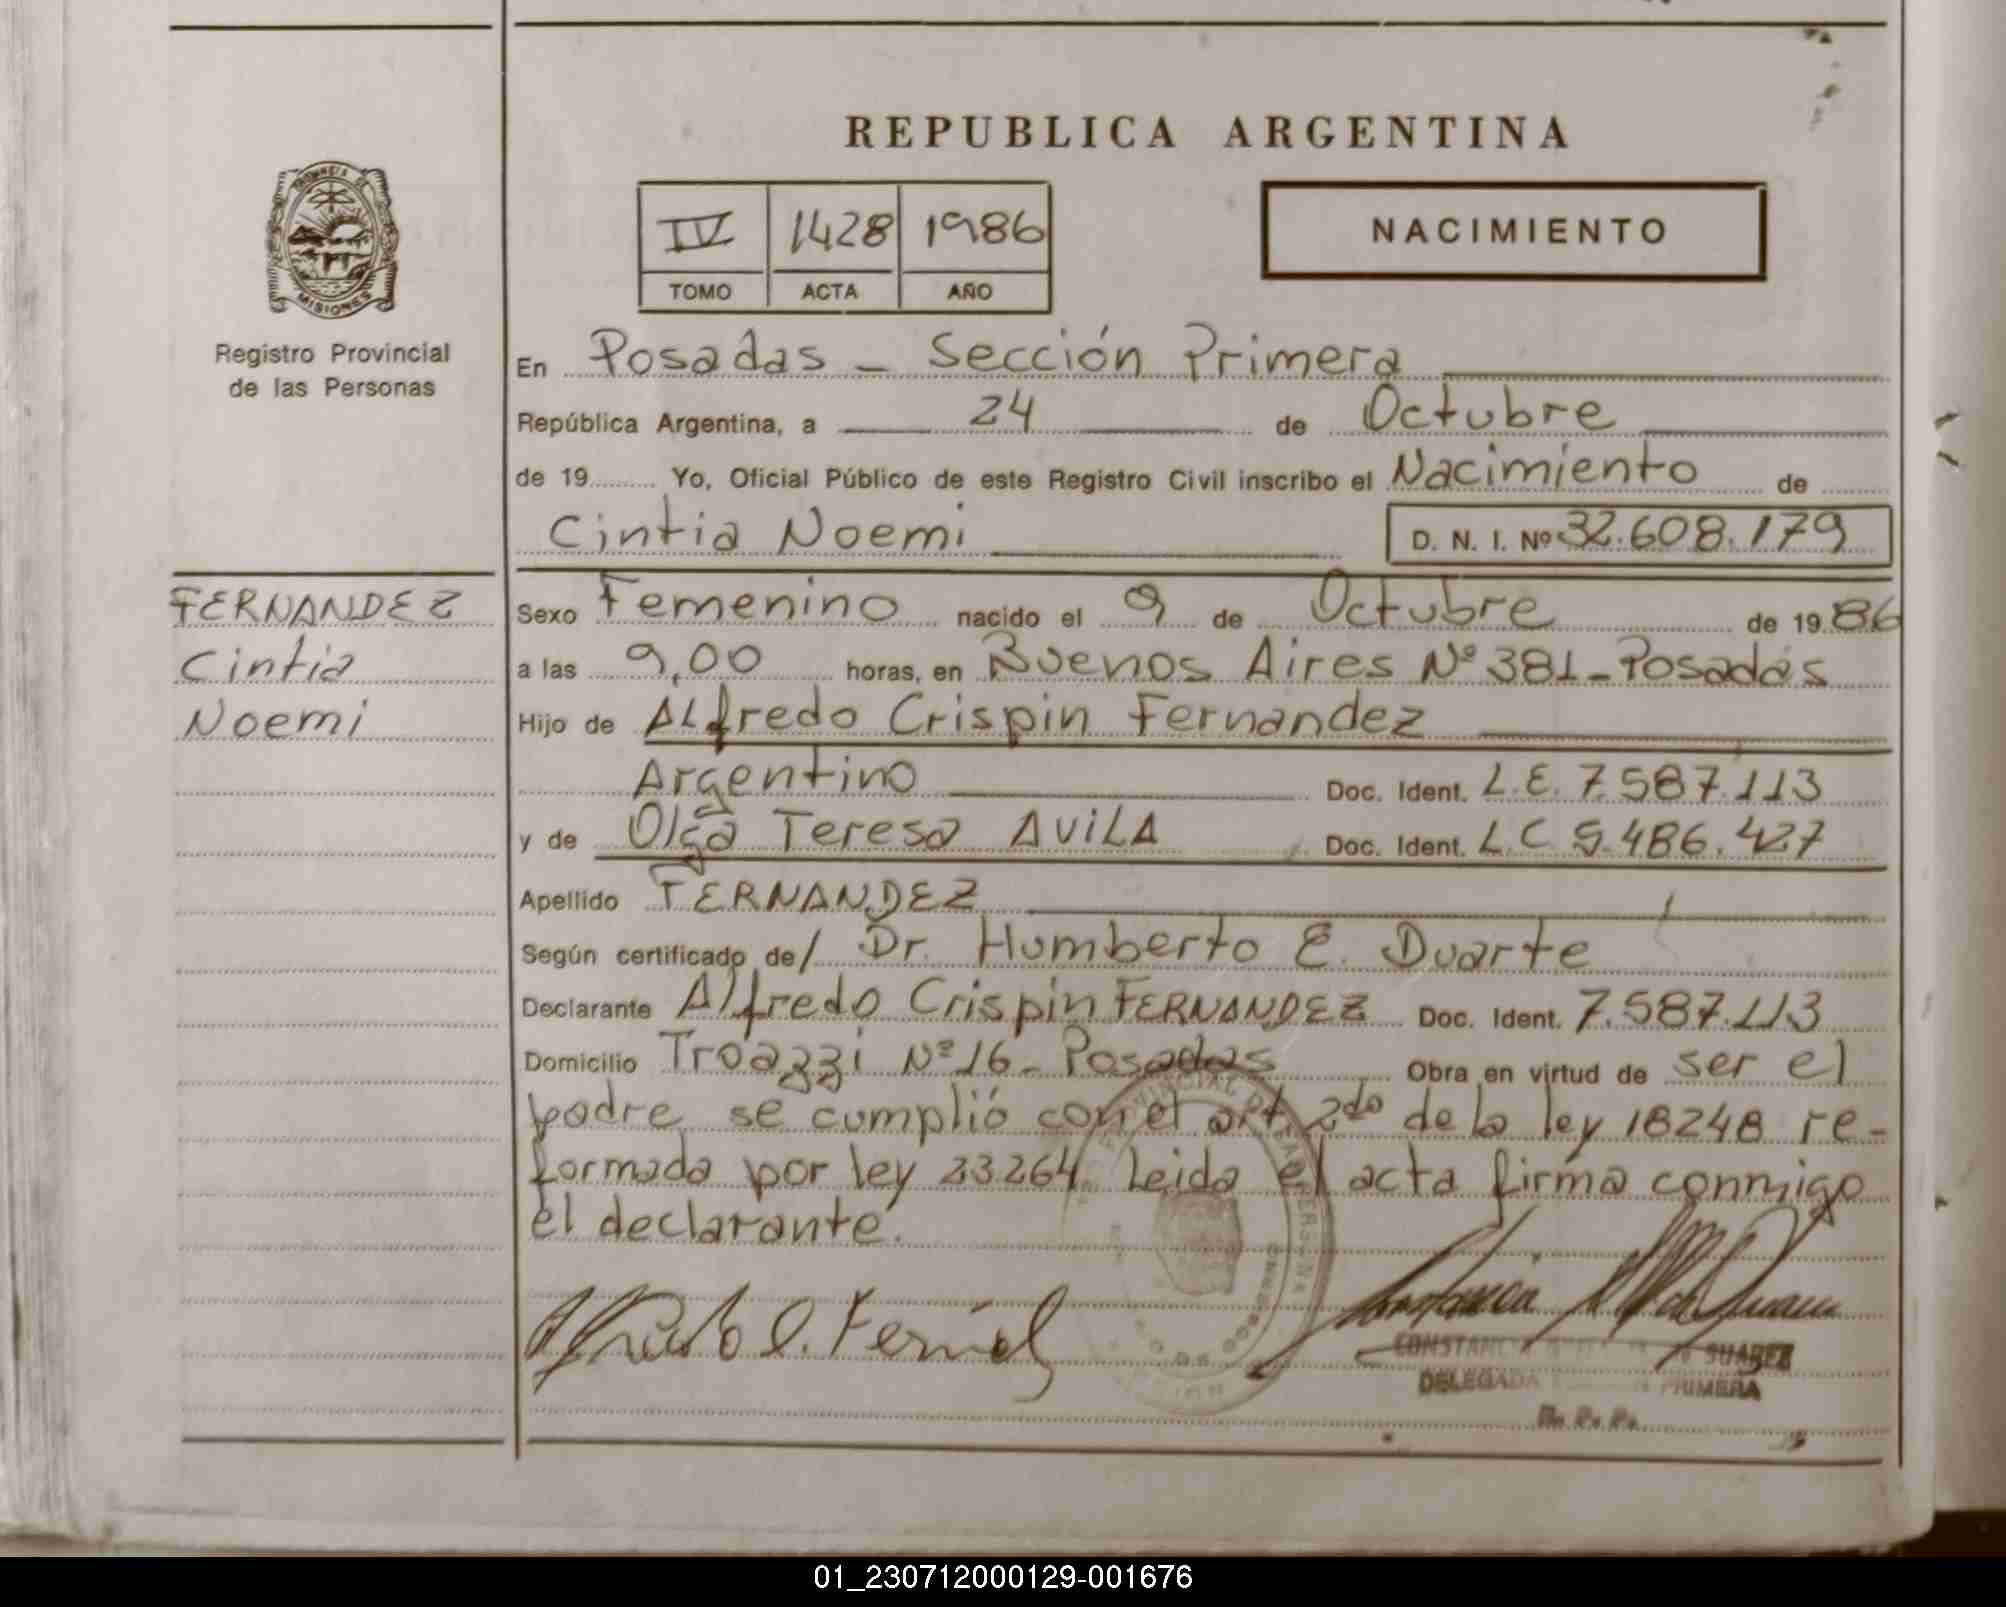 REPUBLICA ARGENTINA
PROVINCIA DE
MISIONES
Registro Provincial
de las Personas
IV 1428 1986
TOMO ACTA AÑO
NACIMIENTO
En Posadas - Sección Primera
República Argentina, a 24 de Octubre
de 19 Yo, Oficial Público de este Registro Civil inscribo el Nacimiento de
Cintia Noemi D. N. I. Nº 32.608.179
FERNANDEZ
Cintia
Noemi
Sexo Femenino nacido el 9 de Octubre de 19 86
a las 9,00 horas, en Buenos Aires Nº 381 - Posadas
Hijo de ALfredo Crispin Fernandez
Argentino Doc. Ident. L.E. 7.587.113
y de Olga Teresa AViLA Doc. Ident. L.C 5.486.427
Apellido FERNANDEZ
Según certificado de/ Dr. Humberto E. Duarte
Declarante Alfredo Crispin FERNANDEZ Doc. Ident. 7.587.113
Domicilio Troazzi Nº 16 - Posadas Obra en virtud de ser el
padre se cumplió con el art. 2do de la ley 18248 re-
formada por ley 23264. Leida el acta firma conmigo
el declarante.
SUAREZ
DELEGADA PRIMERA
01_230712000129-001676